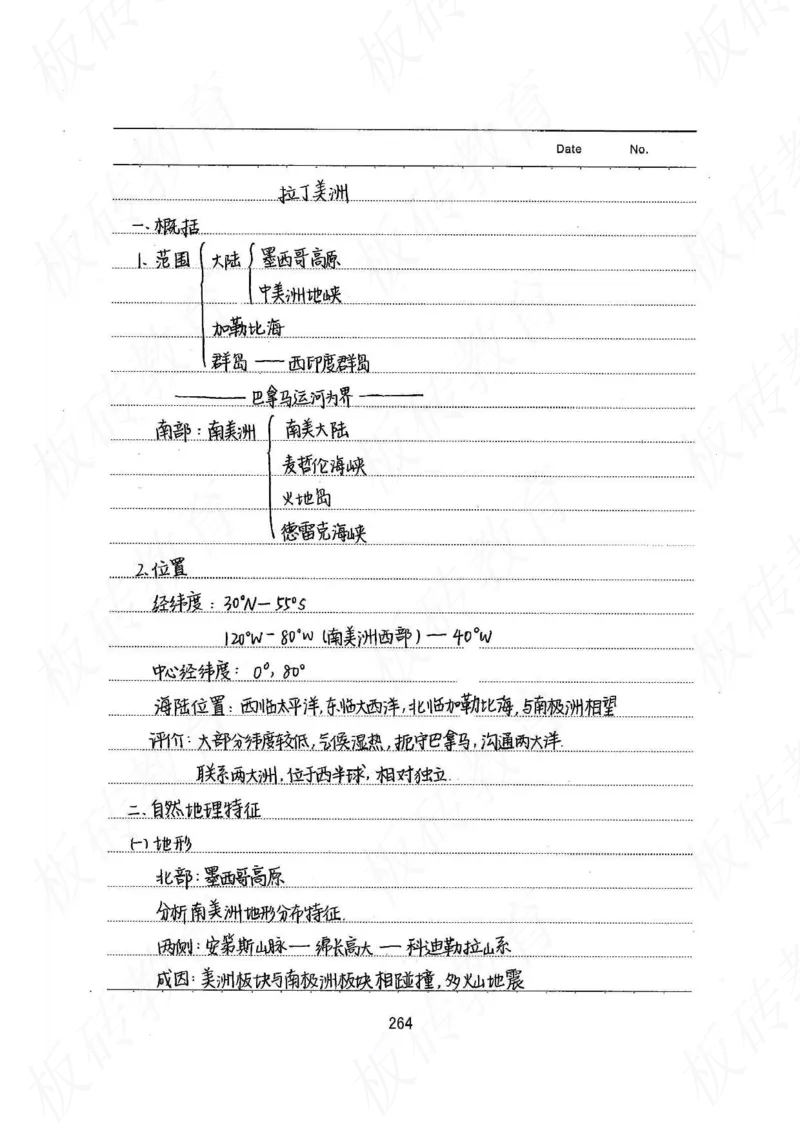 Date No.
拉丁美洲
一、概括
1、范围 大陆 墨西哥高原
中美洲地峡
加勒比海
群岛 — 西印度群岛
—— 巴拿马运河为界 ——
南部：南美洲 南美大陆
麦哲伦海峡
火地岛
德雷克海峡
2、位置
经纬度：30°N — 55°S
120°W - 80°W (南美洲西部) — 40°W
中心经纬度：0°, 80°
海陆位置：西临太平洋,东临大西洋,北临加勒比海,与南极洲相望
评价：大部分纬度较低,气候湿热,扼守巴拿马,沟通两大洋.
联系两大洲,位于西半球,相对独立.
二、自然地理特征
(一) 地形
北部：墨西哥高原
分析南美洲地形分布特征.
西侧：安第斯山脉 — 绵长高大 — 科迪勒拉山系
成因：美洲板块与南极洲板块相碰撞,多火山地震
264
板砖教育